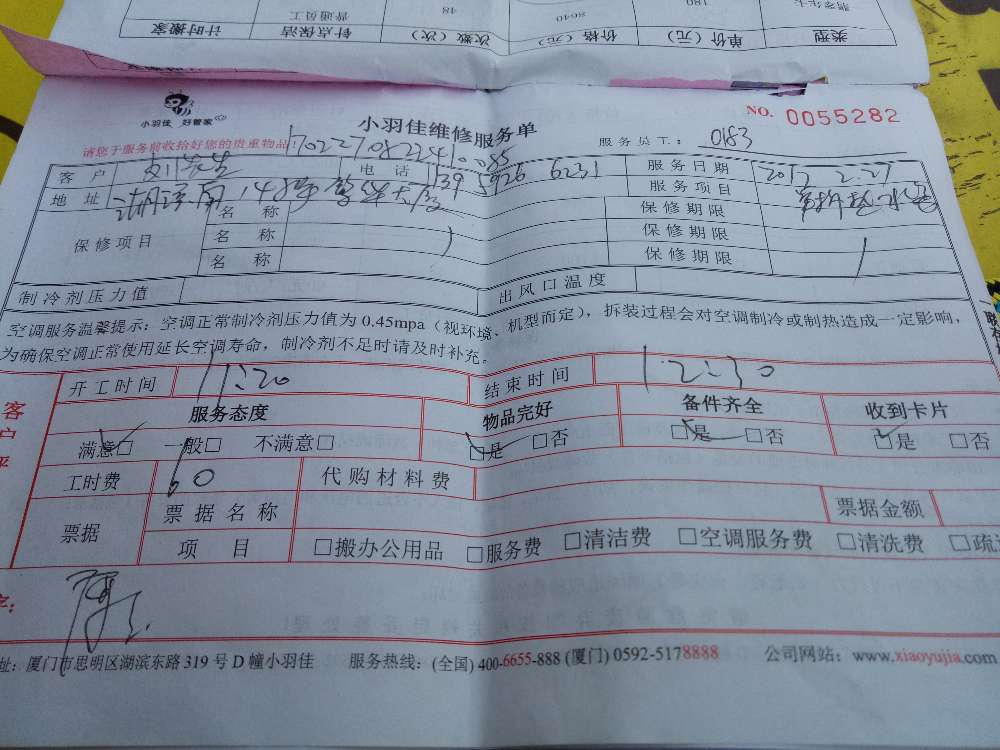 类型 单价（元） 价格（元） 次数（次） 针点保洁 计时搬家
180 8640 48 普通员工
小羽佳 好管家
小羽佳维修服务单
NO. 0055282
请您于服务前收拾好您的贵重物品！
服务员工： 0183
客户 刘先生 电话 139 5926 6231 服务日期 2017 2.27
地址 湖滨南 148号 大厦 服务项目
保修项目 名称 保修期限
名称 保修期限
名称 保修期限
制冷剂压力值 出风口温度
空调服务温馨提示：空调正常制冷剂压力值为 0.45mpa（视环境、机型而定），拆装过程会对空调制冷或制热造成一定影响，
为确保空调正常使用延长空调寿命，制冷剂不足时请及时补充。
开工时间 11:20 结束时间 12:30
服务态度 物品完好 备件齐全 收到卡片
满意□ 一般□ 不满意□ □是 □否 □是 □否 □是 □否
工时费 60 代购材料费
票据 票据名称 票据金额
项目 □搬办公用品 □服务费 □清洁费 □空调服务费 □清洗费 □疏
客户
字：
址：厦门市思明区湖滨东路 319 号 D 幢小羽佳 服务热线：(全国) 400-6655-888 (厦门) 0592-5178888 公司网站：www.xiaoyujia.com